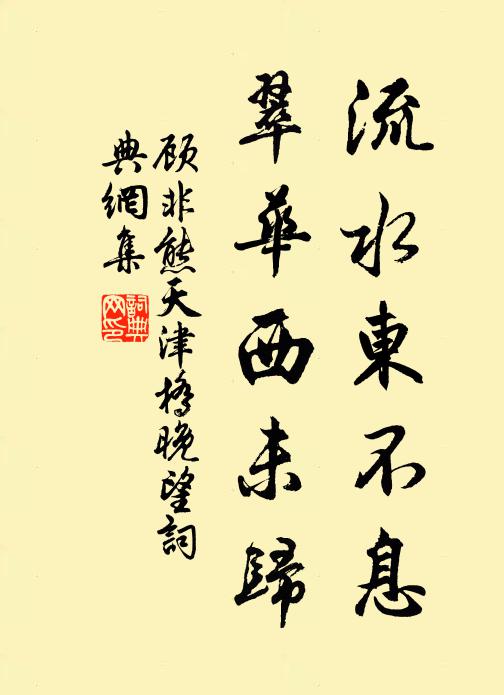 流水東不息
翠華西未歸
顧非熊天津橋晚望詞
典網集
詞典網印